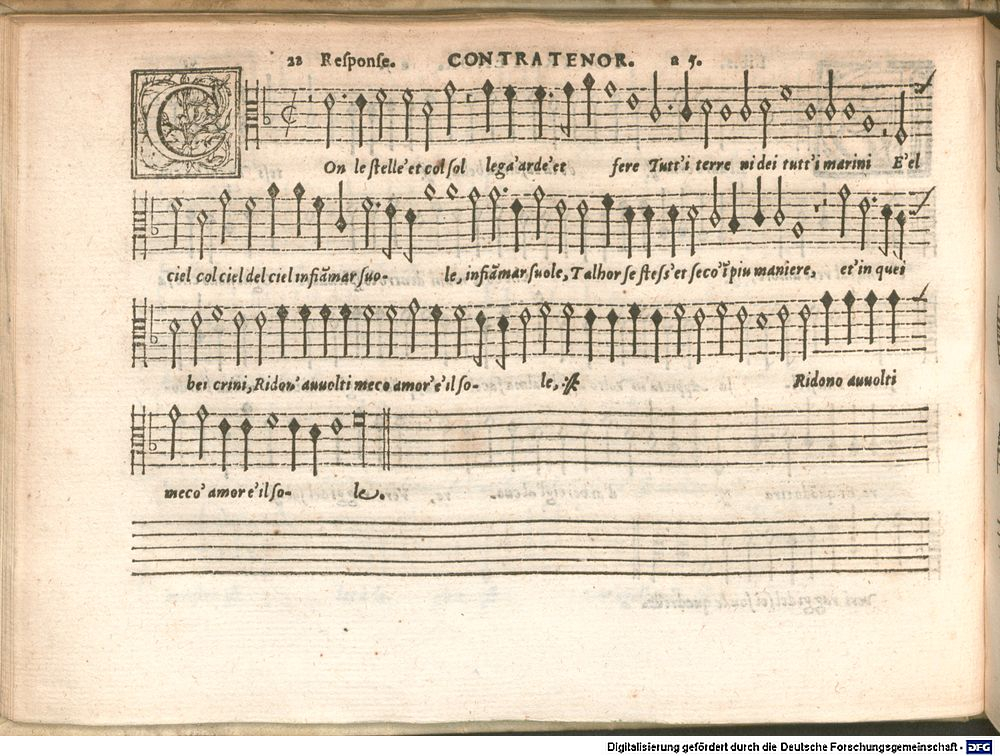 22 Reſponſe. CONTRATENOR. a 5.
COn le ſtelle' et col ſol lega' arde' et fere Tutt' i terre ni dei tutt' i marini E' el
ciel col ciel del ciel infiãmar ſuo- le, infiãmar ſuole, Talhor ſe ſteſs' et ſeco' ĩ piu maniere, et' in quei
bei crini, Ridon' auuolti meco amor' e' il ſo- le, Ridono auuolti
meco' amor e' il ſo- le.
Digitalisierung gefördert durch die Deutsche Forschungsgemeinschaft - DFG